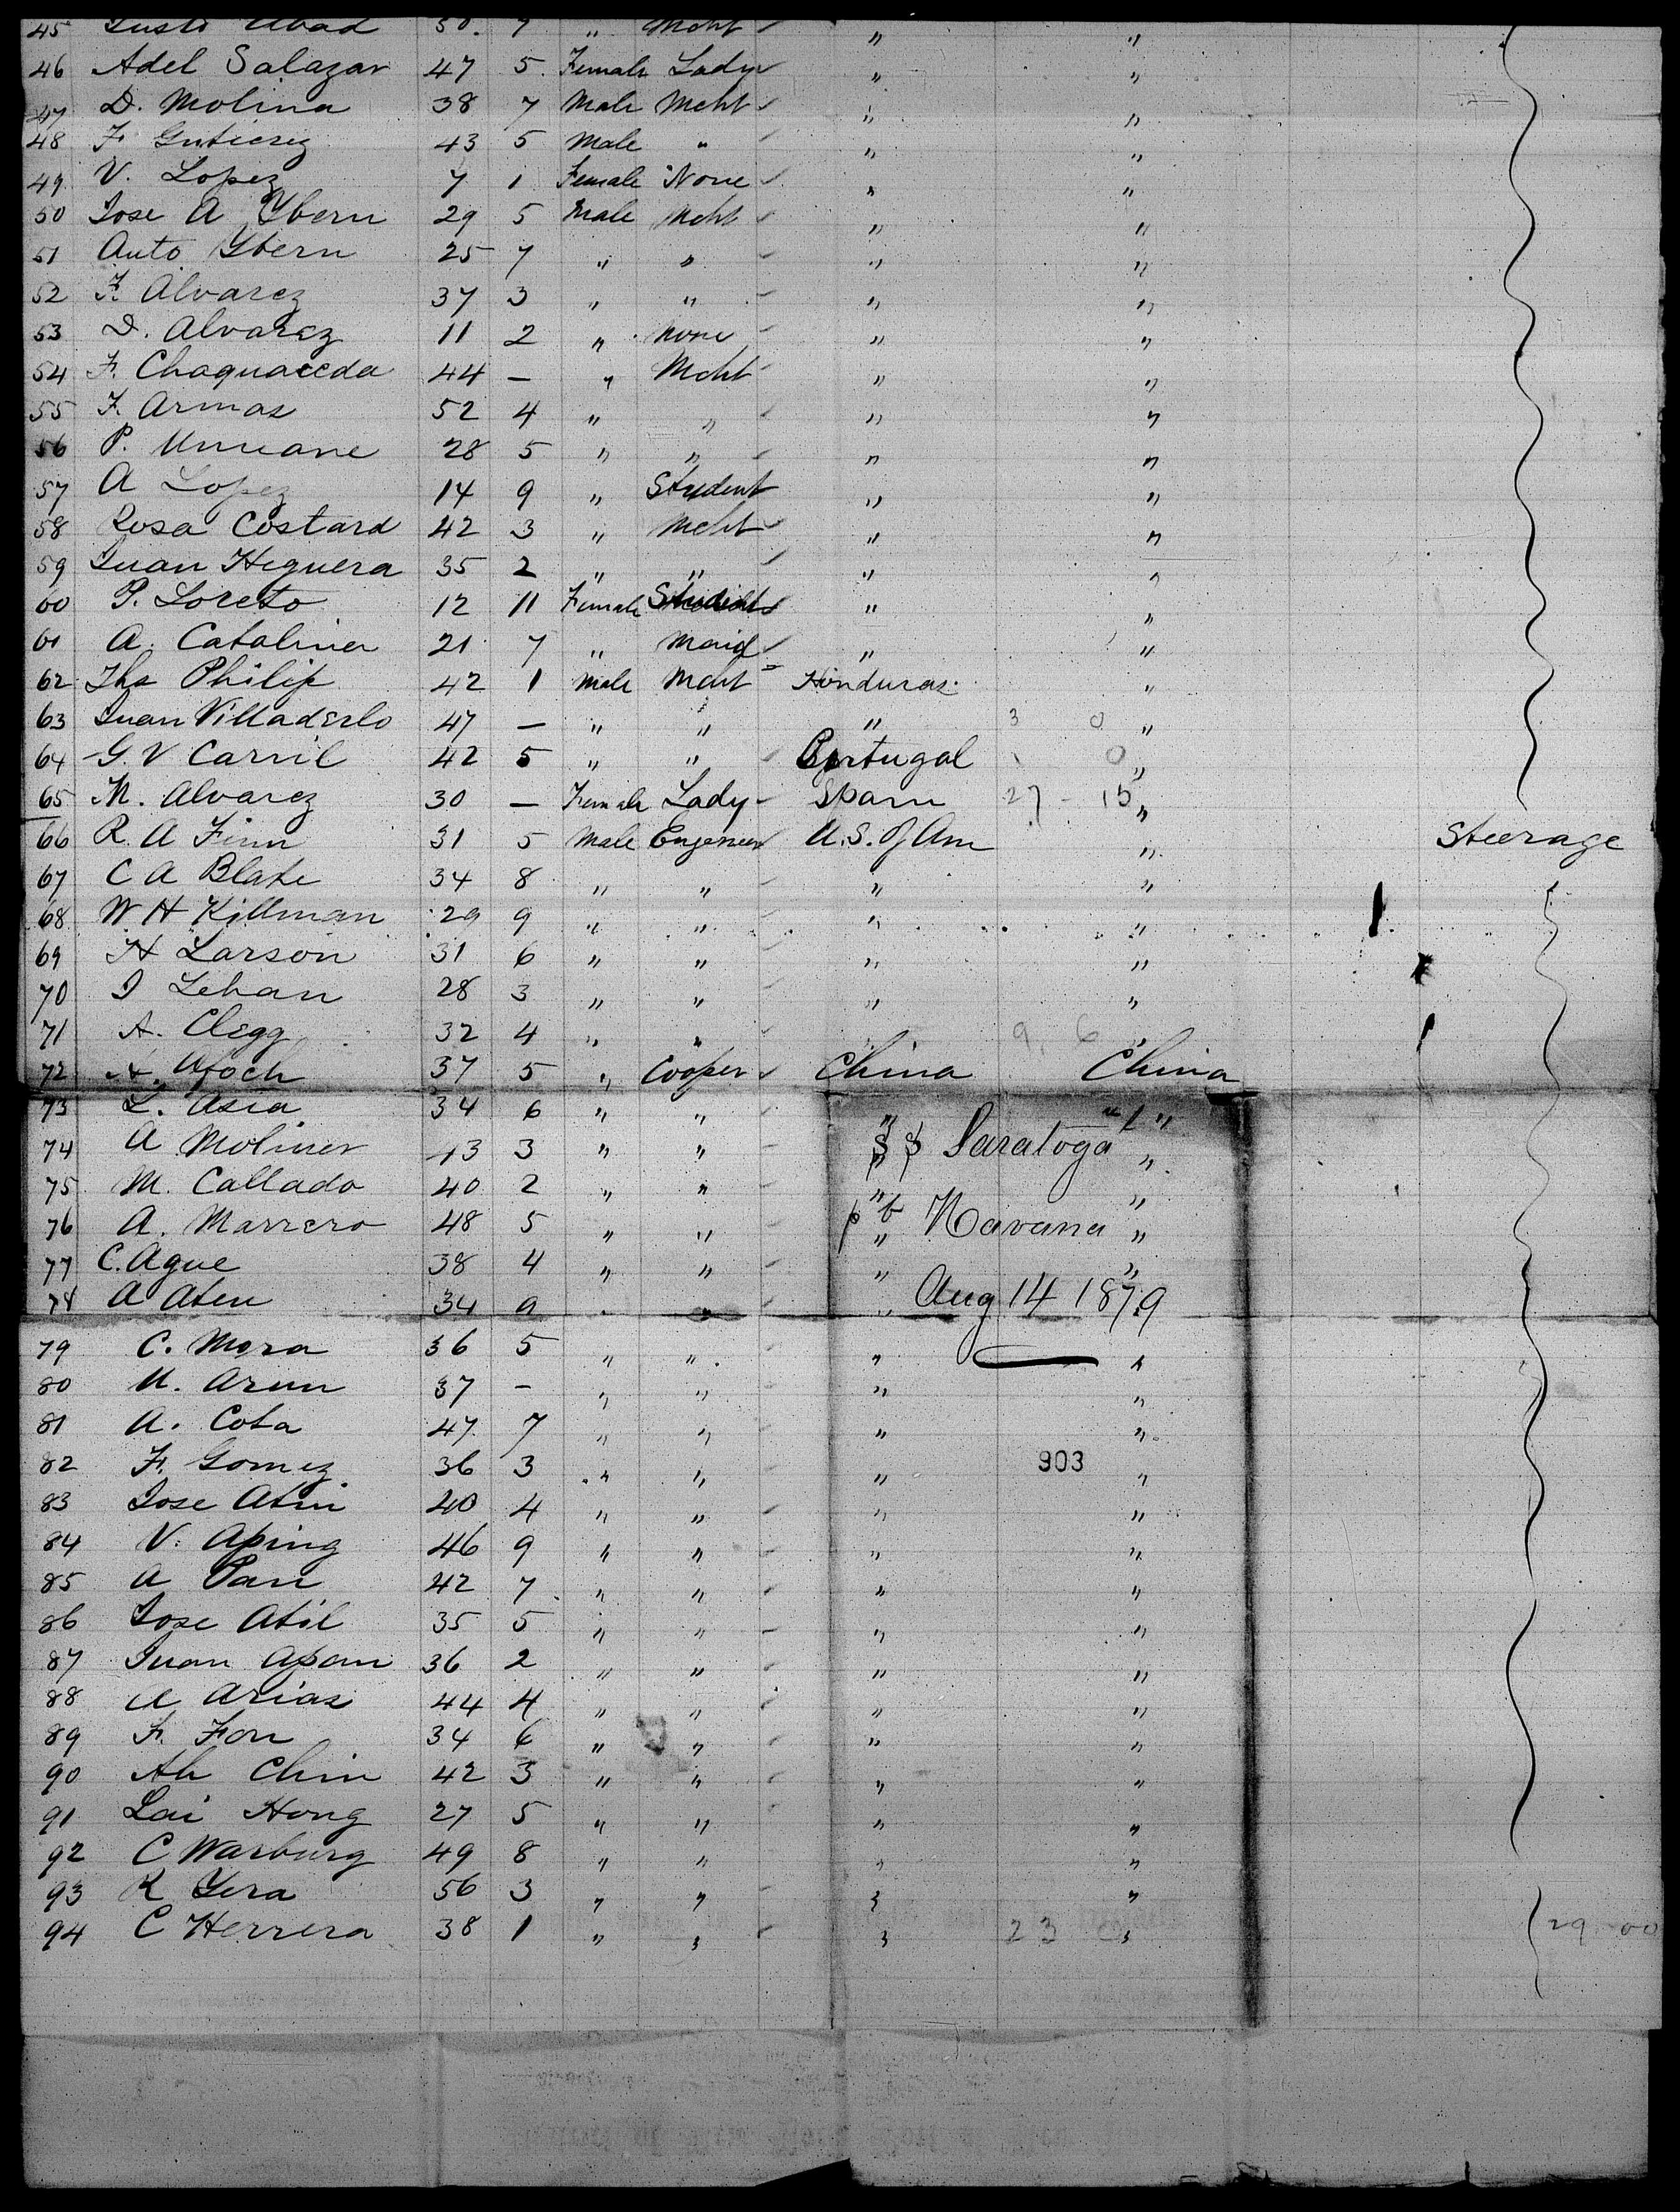 45 Justo Abad 50. 7 " Mcht " "
46 Adel Salazar 47 5 Female Lady " "
47 D. Molina 38 7 Male Mcht " "
48 F Gutierez 43 5 Male " " "
49 V. Lopez 7 1 Female None " "
50 Jose A Ybern 29 5 Male Mcht " "
51 Anto Ybern 25 7 " " " "
52 F. Alvarez 37 3 " " " "
53 D. Alvarez 11 2 " None " "
54 F. Chaquaceda 44 — " Mcht " "
55 F. Armas 52 4 " " " "
56 P. 28 5 " " " "
57 A Lopez 14 9 " Student " "
58 Rosa Costard 42 3 " Mcht " "
59 Juan Heguera 35 2 " " " "
60 P. Loreto 12 11 Female Student " "
61 A. Catalina 21 7 " Maid " "
62 Ths Philip 42 1 Male Mcht Honduras "
63 Juan Villaderlo 47 — " " " 3 0 "
64 G. V Carril 42 5 " " Portugal 0 "
65 M. Alvarez 30 — Female Lady Spain 27 - 15 "
66 R. A Finn 31 5 Male Engeneer U.S. Of Am " Steerage
67 C A Blate 34 8 " " " "
68 W H Killman 29 9 " " " "
69 H Larson 31 6 " " " "
70 J Lehan 28 3 " " " "
71 A. Clegg 32 4 " " " 9. 6 "
72 A. Afoch 37 5 " Cooper China China
73 L. Asia 34 6 " " " "
74 A Moliner 43 3 " " " "
SS Saratoga
75 M. Callado 40 2 " " " "
76 A. Marrero 48 5 " " " "
Havana
77 C. Ague 38 4 " " " "
78 A Aten 34 9 " " "
Aug 14 1879
79 C. Mora 36 5 " " " "
80 M. Arun 37 - " " " "
81 A. Cota 47 7 " " " "
82 F. Gomez 36 3 " " " "
903
83 Jose Atni 40 4 " " " "
84 V. Aping 46 9 " " " "
85 A Pan 42 7 " " " "
86 Jose Atil 35 5 " " " "
87 Juan Apan 36 2 " " " "
88 A Arias 44 4 " " " "
89 F. Fon 34 6 " " " "
90 Ah Chin 42 3 " " " "
91 Lai Hong 27 5 " " " "
92 C Warburg 49 8 " " " "
93 R Yera 56 3 " " " "
94 C Herrera 38 1 " " " 23 " 29 00